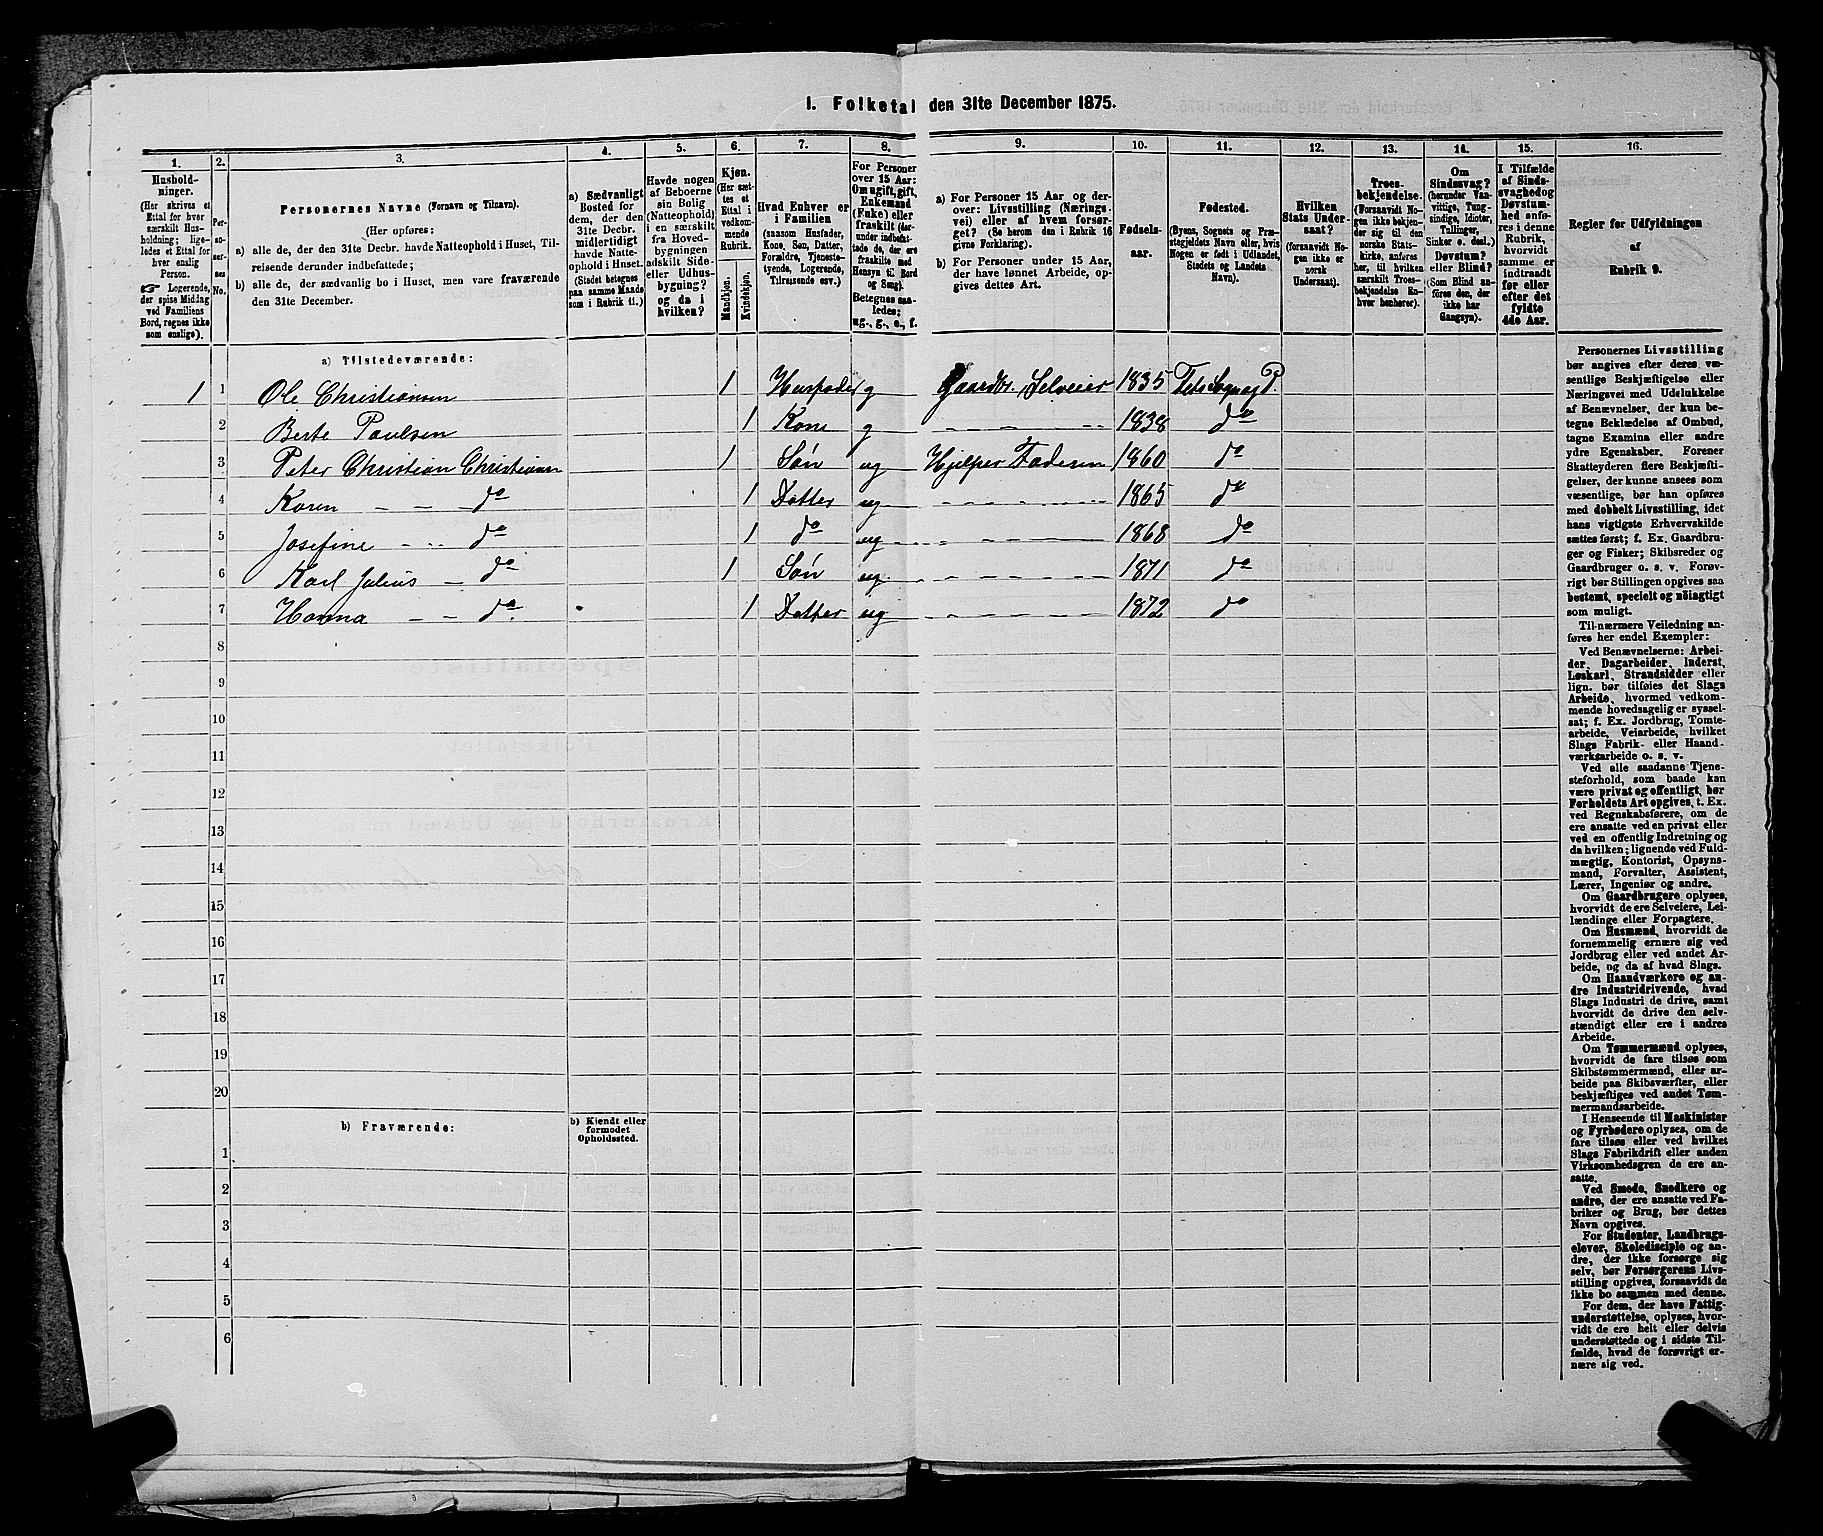 I. Folketal den 31te December 1875.
1.
2.
3.
4.
5.
6.
7.
8.
9.
10.
11.
12.
13.
14.
15.
16.
Hushold-
ninger.
(Her skrives et
Ettal for hver
særskilt Hus-
holdning; lige-
ledes et Ettal for
hver enslig
Person.
☞ Logerende,
der spise Middag
ved Familiens
Bord, regnes ikke
som enslige).
Per-
so-
ner-
nes
No.
Personernes Navne (Fornavn og Tilnavn).
(Her opføres:
a) alle de, der den 31te Decbr. havde Natteophold i Huset, Til-
reisende derunder indbefattede;
b) alle de, der sædvanlig bo i Huset, men vare fraværende
den 31te December.
a) Sædvanligt
Bosted for
dem, der den
31te Decbr.
midlertidigt
havde Natte-
ophold i Huset.
(Stedet betegnes
paa samme Maade
som i Rubrik 11.)
Havde nogen
af Beboerne
sin Bolig
(Natteophold)
i en særskilt
fra Hoved-
bygningen
adskilt Side-
eller Udhus-
bygning?
og da i
hvilken?
Kjøn.
(Her sæt-
tes et
Ettal i
vedkom-
mende
Rubrik.
Mandkjøn.
Kvindekjøn.
Hvad Enhver er
i Familien
(saasom Husfader,
Kone, Søn, Datter,
Forældre, Tjeneste-
tyende, Logerende,
Tilreisende osv.)
For Personer
over 15 Aar:
Om ugift, gift,
Enkemand
(Enke) eller
fraskilt (der-
under indbefat-
tede de, der ere
fraskilte med
Hensyn til Bord
og Seng).
Betegnes saa-
ledes:
ug., g., e., f.
a) For Personer 15 Aar og der-
over: Livsstilling (Nærings-
vei) eller af hvem forsør-
get? (Se herom den i Rubrik 16
givne Forklaring).
b) For Personer under 15 Aar,
der have lønnet Arbeide, op-
gives dettes Art.
Fødsels-
aar.
Fødested.
(Byens, Sognets og Præ-
stegjeldets Navn eller, hvis
Nogen er født i Udlandet,
Stedets og Landets
Navn).
Hvilken
Stats Under-
saat?
(forsaavidt No-
gen ikke er
norsk
Undersaat).
Troes-
bekjendelse.
(Forsaavidt No-
gen ikke bekjen-
der sig til den
norske Stats-
kirke, anføres
her, til hvilken
særskilt Troes-
bekjendelse En-
hver henhører).
Om
Sindssvag?
(herunder Van-
vittige, Tung-
sindige, Idioter,
Tullinger,
Sinker o. desl.)
Døvstum?
eller Blind?
(Som Blind an-
føres den, der
ikke har
Gangsyn).
I Tilfælde
af Sinds-
svaghed og
Døvstum-
hed anfø-
res i denne
Rubrik,
hvorvidt
samme er
indtraadt
før eller
efter det
fyldte
4de Aar.
Regler for Udfyldningen
af
Rubrik 9.
a) Tilstedeværende:
1 1 Ole Christiansen 1 Husfader g Gaardbr. Selveier 1835 Fets Sogn og P.
2 Berte Paulsen 1 Kone g 1838 do
3 Peter Christian Christiansen 1 Søn ug Hjelper Faderen 1860 do
4 Karen do 1 Datter ug 1865 do
5 Josefine do 1 do ug 1868 do
6 Karl Julius do 1 Søn ug 1871 do
7 Hanna do 1 Datter ug 1872 do
8
9
10
11
12
13
14
15
16
17
18
19
20
b) Fraværende:
b) Kjendt eller
formodet
Opholdssted.
1
2
3
4
5
6
Personernes Livsstilling
bør angives efter deres væ-
sentlige Beskjæftigelse eller
Næringsvei med Udelukkelse
af Benævnelser, der kun be-
tegne Beklædelse af Ombud,
tagne Examina eller andre
ydre Egenskaber. Forener
Skatteyderen flere Beskjæfti-
gelser, der kunne ansees som
væsentlige, bør han opføres
med dobbelt Livsstilling, idet
hans vigtigste Erhvervskilde
sættes først; f. Ex. Gaardbru-
ger og Fisker; Skibsreder og
Gaardbruger o. s. v. Forøv-
rigt bør Stillingen opgives saa
bestemt, specielt og nöiagtigt
som muligt.
Til nærmere Veiledning an-
føres her endel Exempler:
Ved Benævnelserne: Arbei-
der, Dagarbeider, Inderst,
Løskarl, Strandsidder eller
lign. bør tilføies det Slags
Arbeide, hvormed vedkom-
mende hovedsagelig er syssel-
sat; f. Ex. Jordbrug, Tomte-
arbeide, Veiarbeide, hvilket
Slags Fabrik- eller Haand-
værksarbeide o. s. v.
Ved alle saadanne Tjene-
steforhold, som baade kan
være privat og offentligt, bør
Forholdets Art opgives, t. Ex.
ved Regnskabsførere, om de
ere ansatte ved en privat eller
ved en offentlig Indretning og
da hvilken; lignende ved Fuld-
mægtig, Kontorist, Opsyns-
mand, Forvalter, Assistent,
Lærer, Ingeniør og andre.
Om Gaardbrugere oplyses,
hvorvidt de ere Selveiere, Lei-
lændinge eller Forpagtere.
Om Husmænd, hvorvidt de
fornemmelig ernære sig ved
Jordbrug eller ved andet Ar-
beide, og da af hvad Slags.
Om Haandværkere og an-
dre Industridrivende, hvad
Slags Industri de drive, samt
hvorvidt de drive den selv-
stændigt eller ere i andres
Arbeide.
Om Tømmermænd oplyses,
hvorvidt de fare tilsøs som
Skibstømmermænd, eller ar-
beide paa Skibsværfter, eller
beskjæftiges ved andet Tøm-
mermandsarbeide.
I Henseende til Maskinister
og Fyrbødere oplyses, om de
fare tilsøs eller ved hvilket
Slags Fabrikdrift eller anden
Virksomhedsgren de ere an-
satte.
Ved Smede, Snedkere og
andre, der ere ansatte ved Fa-
briker og Brug, bør dettes
Navn opgives.
For Studenter, Landbrugs-
elever, Skoledisciple og an-
dre, der ikke forsørge sig
selv, bør Forsørgerens Livs-
stilling opgives, forsaavidt de
ikke bo sammen med denne.
For dem, der have Fattig-
understøttelse, oplyses, hvor-
vidt de ere helt eller delvis
understøttede og i sidste Til-
fælde, hvad de forøvrigt er-
nære sig ved.